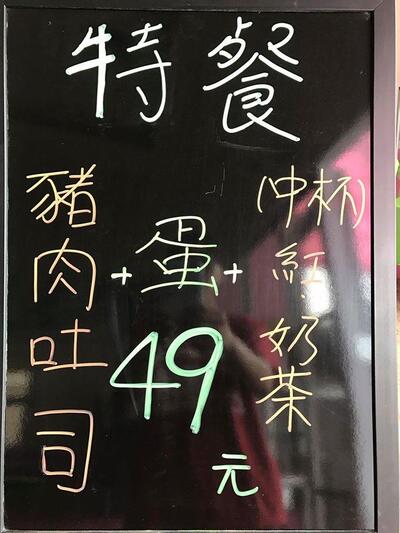 特餐
豬肉吐司
+
蛋
+
(中杯)
紅.奶茶
49
元